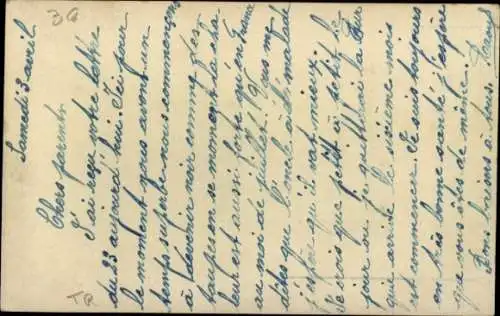 36
Samedi 3 avril
Chers parents
J'ai reçu votre lettre
du 23 aujourd'hui. Ici pour
le moment nous avons un
temps superbe nous commençons
à devenir noir comme des
en ce moment la cha
leur est aussi forte qu'en France
au moi de juillet. Vous me
dites que l'oncle à été malade
j'espère qu'il vat mieux.
Je vois que petit à petit le
jour ou je quitterai la
qui arrive le sixième mois
est commencer. Je suis toujours
en très bonne santé j'espère
que vous êtes de même.
Bons baisers à tous.
TR